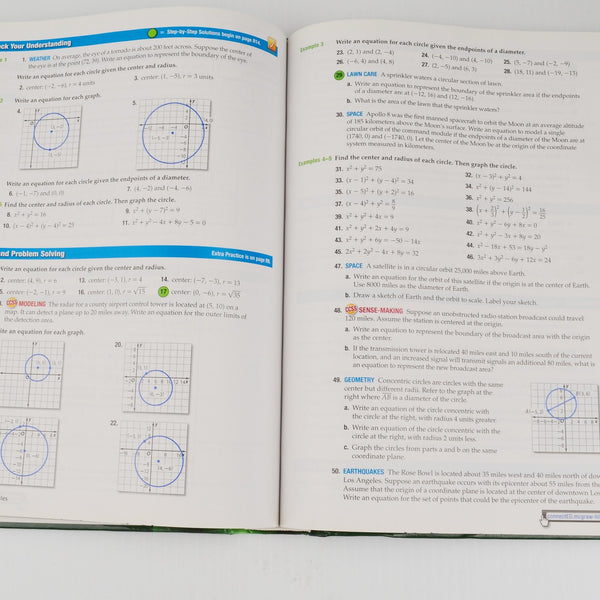 ck Your Understanding
= Step-by-Step Solutions begin on page R14.
1. WEATHER On average, the eye of a tornado is about 200 feet across. Suppose the center of
the eye is at the point (72, 39). Write an equation to represent the boundary of the eye.
Write an equation for each circle given the center and radius.
2. center: (−2, −6), r = 4 units
3. center: (1, −5), r = 3 units
Write an equation for each graph.
4.
5.
Write an equation for each circle given the endpoints of a diameter.
6. (−1, −7) and (0, 0)
7. (4, −2) and (−4, −6)
Find the center and radius of each circle. Then graph the circle.
8. x² + y² = 16
9. x² + (y − 7)² = 9
10. (x − 4)² + (y − 4)² = 25
11. x² + y² − 4x + 8y − 5 = 0
nd Problem Solving
Extra Practice is on page R9.
Write an equation for each circle given the center and radius.
2. center: (4, 9), r = 6
13. center: (−3, 1), r = 4
14. center: (−7, −3), r = 13
5. center: (−2, −1), r = 9
16. center: (1, 0), r = √15
17 center: (0, −6), r = √35
MODELING The radar for a county airport control tower is located at (5, 10) on a
map. It can detect a plane up to 20 miles away. Write an equation for the outer limits of
the detection area.
ite an equation for each graph.
20.
22.
Example 3
Write an equation for each circle given the endpoints of a diameter.
23. (2, 1) and (2, −4)
24. (−4, −10) and (4, −10)
25. (5, −7) and (−2, −9)
26. (−6, 4) and (4, 8)
27. (2, −5) and (6, 3)
28. (18, 11) and (−19, −13)
29 LAWN CARE A sprinkler waters a circular section of lawn.
a. Write an equation to represent the boundary of the sprinkler area if the endpoints
of a diameter are at (−12, 16) and (12, −16).
b. What is the area of the lawn that the sprinkler waters?
30. SPACE Apollo 8 was the first manned spacecraft to orbit the Moon at an average altitude
of 185 kilometers above the Moon's surface. Write an equation to model a single
circular orbit of the command module if the endpoints of a diameter of the Moon are at
(1740, 0) and (−1740, 0). Let the center of the Moon be at the origin of the coordinate
system measured in kilometers.
Examples 4–5 Find the center and radius of each circle. Then graph the circle.
31. x² + y² = 75
32. (x − 3)² + y² = 4
33. (x − 1)² + (y − 4)² = 34
34. x² + (y − 14)² = 144
35. (x − 5)² + (y + 2)² = 16
36. x² + y² = 256
37. (x − 4)² + y² = 8/9
38. (x + 2/3)² + (y − 1/2)² = 16/25
39. x² + y² + 4x = 9
40. x² + y² − 6y + 8x = 0
41. x² + y² + 2x + 4y = 9
42. x² + y² − 3x + 8y = 20
43. x² + y² + 6y = −50 − 14x
44. x² − 18x + 53 = 18y − y²
45. 2x² + 2y² − 4x + 8y = 32
46. 3x² + 3y² − 6y + 12x = 24
47. SPACE A satellite is in a circular orbit 25,000 miles above Earth.
a. Write an equation for the orbit of this satellite if the origin is at the center of Earth.
Use 8000 miles as the diameter of Earth.
b. Draw a sketch of Earth and the orbit to scale. Label your sketch.
48. SENSE-MAKING Suppose an unobstructed radio station broadcast could travel
120 miles. Assume the station is centered at the origin.
a. Write an equation to represent the boundary of the broadcast area with the origin
as the center.
b. If the transmission tower is relocated 40 miles east and 10 miles south of the current
location, and an increased signal will transmit signals an additional 80 miles, what is
an equation to represent the new broadcast area?
49. GEOMETRY Concentric circles are circles with the same
center but different radii. Refer to the graph at the
right where AB is a diameter of the circle.
a. Write an equation of the circle concentric with
the circle at the right, with radius 4 units greater.
b. Write an equation of the circle concentric with the
circle at the right, with radius 2 units less.
c. Graph the circles from parts a and b on the same
coordinate plane.
50. EARTHQUAKES The Rose Bowl is located about 35 miles west and 40 miles north of dow
Los Angeles. Suppose an earthquake occurs with its epicenter about 55 miles from the
Assume that the origin of a coordinate plane is located at the center of downtown Los
Write an equation for the set of points that could be the epicenter of the earthquake.
connectED.mcgraw-hil